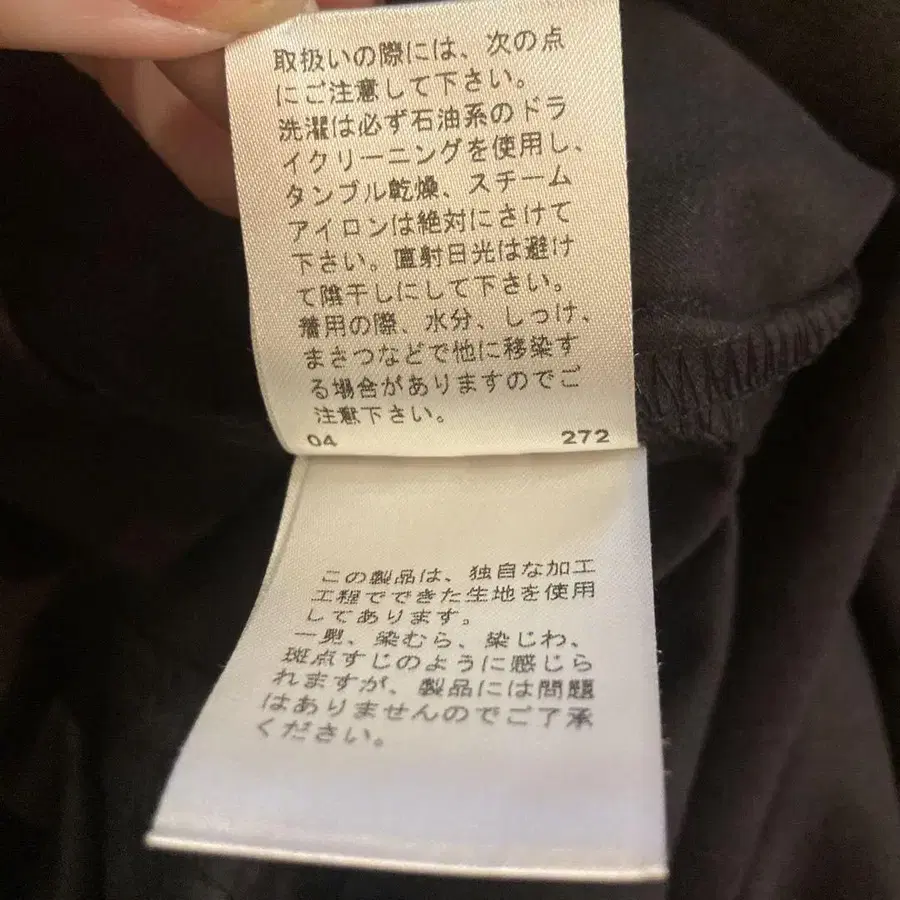 取扱いの際には、次の点
にご注意して下さい。
洗濯は必ず石油系のドラ
イクリーニングを使用し、
タンブル乾燥、スチーム
アイロンは絶対にさけて
下さい。直射日光は避け
て陰干しにして下さい。
着用の際、水分、しっけ、
まさつなどで他に移染す
る場合がありますのでご
注意下さい。
04 272
この製品は、独自な加工
工程でできた生地を使用
してあります。
一見、染むら、染じわ、
斑点すじのように感じら
れますが、製品には問題
はありませんのでご了承
ください。